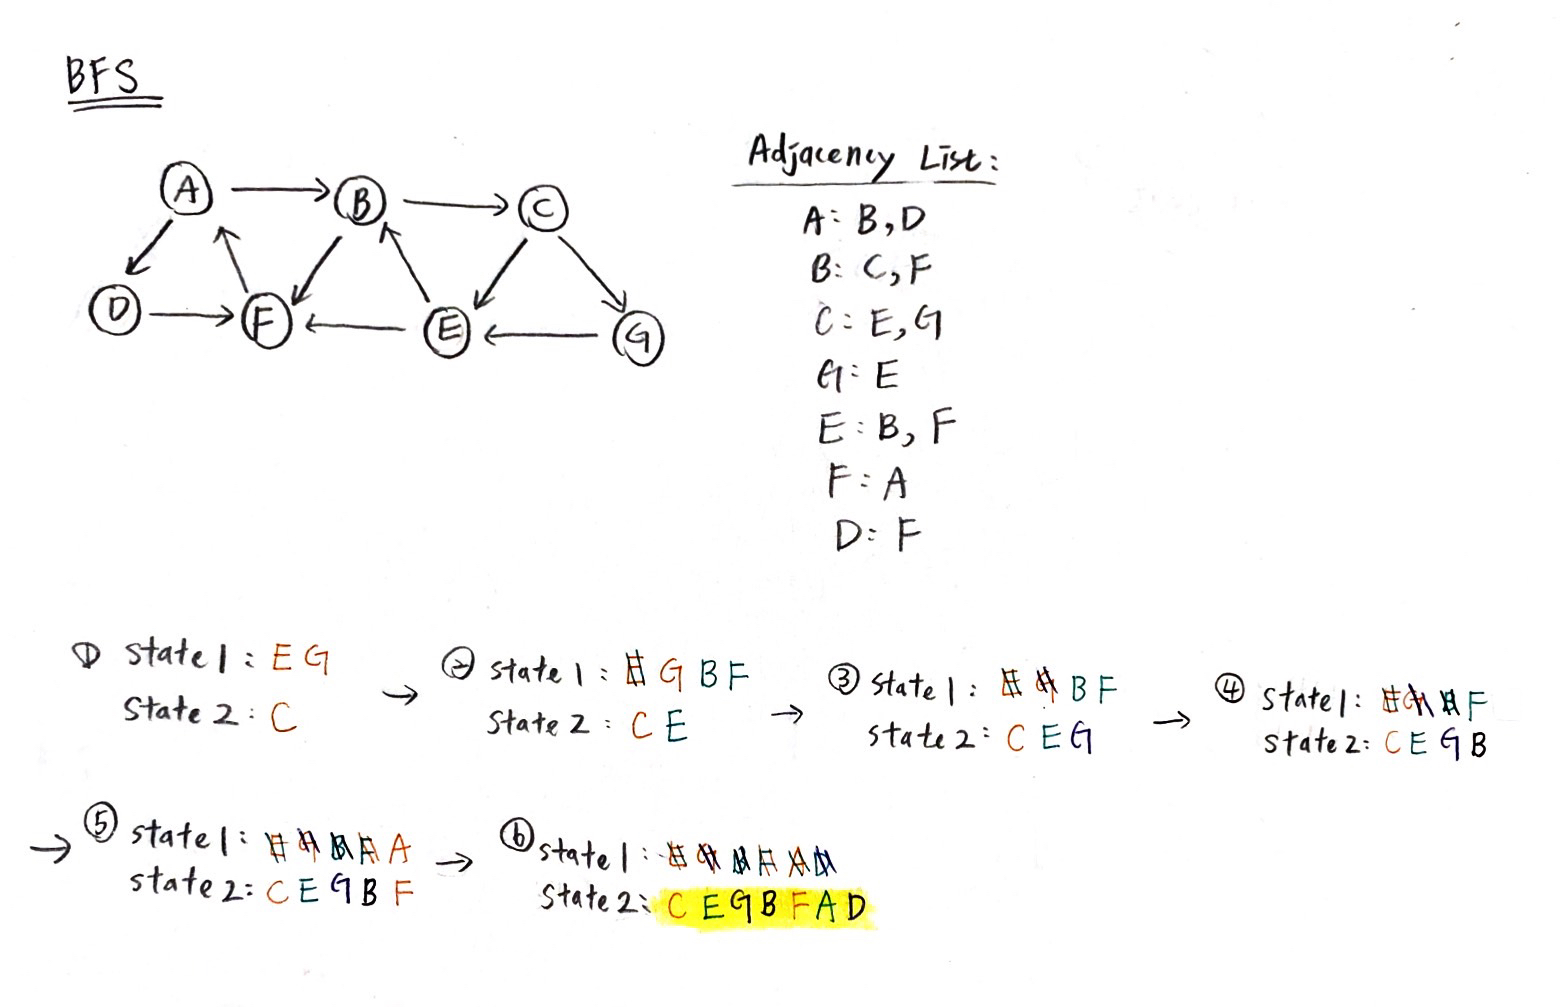 BFS
Adjacency List:
A B C
D F E G
A: B, D
B: C, F
C: E, G
G: E
E: B, F
F: A
D: F
① state 1: E G
state 2: C
→ ② state 1: E G B F
state 2: C E
→ ③ state 1: E G B F
state 2: C E G
→ ④ state 1: E G B F
state 2: C E G B
→ ⑤ state 1: E G B F A
state 2: C E G B F
→ ⑥ state 1: E G B F A D
state 2: C E G B F A D